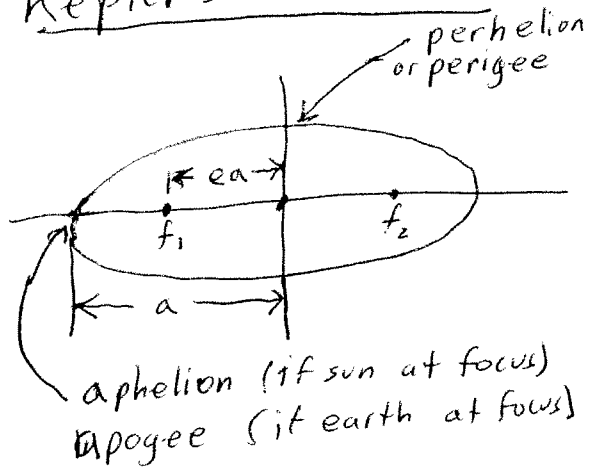 Kepler's
perhelion
or perigee
ea
f₁
f₂
a
aphelion (if sun at focus)
apogee (if earth at focus)